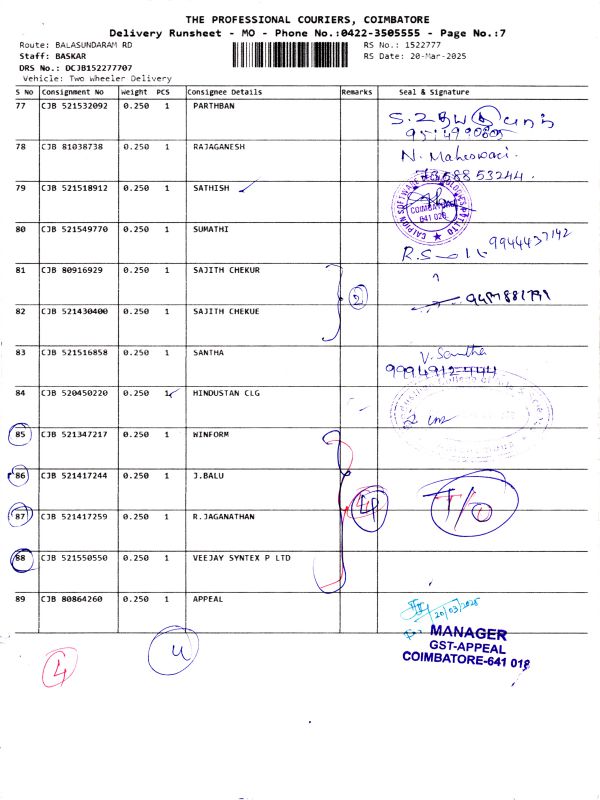 THE PROFESSIONAL COURIERS, COIMBATORE
Delivery Runsheet - MO - Phone No.:0422-3505555 - Page No.:7
Route: BALASUNDARAM RD RS No.: 1522777
Staff: BASKAR RS Date: 20-Mar-2025
DRS No.: DCJB152277707
Vehicle: Two Wheeler Delivery
S No Consignment No Weight PCS Consignee Details Remarks Seal & Signature
77 CJB 521532092 0.250 1 PARTHBAN
78 CJB 81038738 0.250 1 RAJAGANESH N. Maheswari.
73588 53244.
79 CJB 521518912 0.250 1 SATHISH
COIMBATORE
641 028
80 CJB 521549770 0.250 1 SUMATHI 9944437142
81 CJB 80916929 0.250 1 SAJITH CHEKUR
2
82 CJB 521430400 0.250 1 SAJITH CHEKUE
83 CJB 521516858 0.250 1 SANTHA V. Santha
9994912444
84 CJB 520450220 0.250 1 HINDUSTAN CLG
85 CJB 521347217 0.250 1 WINFORM
86 CJB 521417244 0.250 1 J.BALU
87 CJB 521417259 0.250 1 R.JAGANATHAN
88 CJB 521550550 0.250 1 VEEJAY SYNTEX P LTD
89 CJB 80864260 0.250 1 APPEAL
20/03/2025
MANAGER
GST-APPEAL
COIMBATORE-641 018
4 4